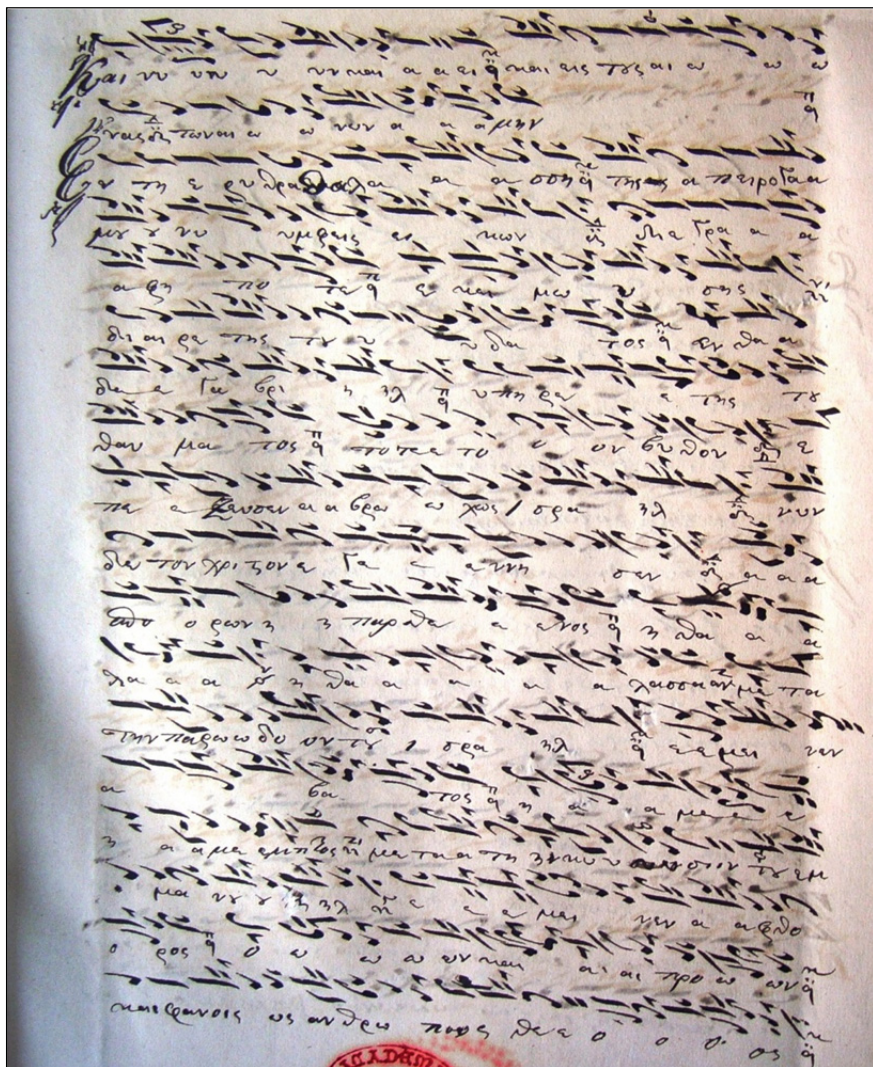 Και νυ υν υ υν και α α ει και εις τους αι ω ω ω
νας των αι ω ω νων α α α μην
Εν τη ε ρυ θρα θαλα α α α σση της α πειρογα α
μου ου νυ υμφεις ει κων δι ε γρα α α
α φη πο τε ε κει μω ω σης
δι αι ρε της του υ υ δα τος εν θα α
δε ε Γα βρι η ηλ υ πη ρε ε της του
θαυ μα τος το τε το ο ον βυ θον ε
πε ε ζευσεν α α βρο ο χως Ισρα ηλ νυν
δε τον χριστον ε γε ε ε ννη σεν α α α
σπο ο ρως η η παρθε ε ενος η θα α α
λα α α η θα α α α α α λασσα με τα
την παρο ο δο ον του Ισρα ηλ ε ε μει νεν
α βα τος η α α με ε ε
η α α με εμπτος με τα α τη ην κυ υ ησιν του εμ
μα νου ου η ηλ ε ε ε μει νεν α α φθο
ο ρος ο ω ω ω ων και αι αι προ ω ων
και φανεις ως ανθρω πος θε ε ο ο ο ος
ACADEM